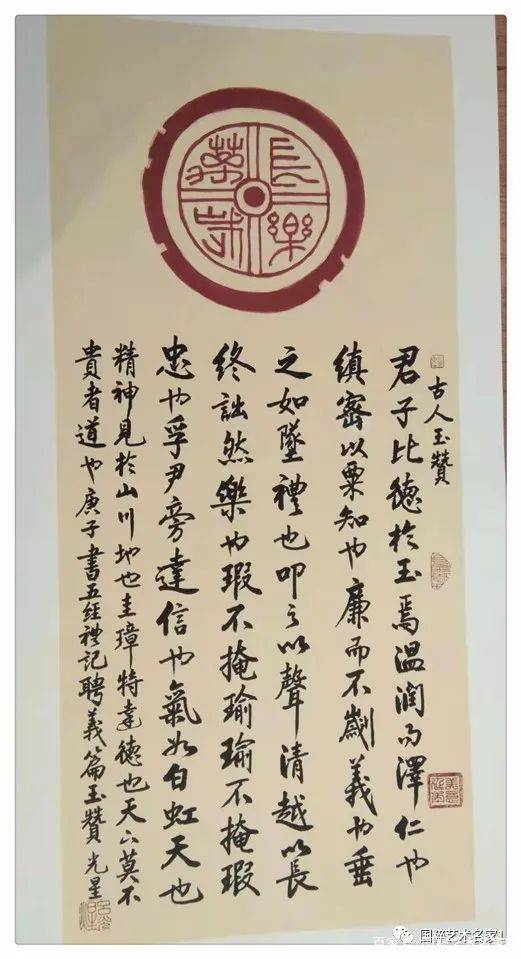 長樂萬歲
古人玉贊
君子比德於玉焉温潤而澤仁也
縝密以粟知也廉而不劌義也垂
之如墜禮也叩之以聲清越以長
終詘然樂也瑕不掩瑜瑜不掩瑕
忠也孚尹旁達信也氣如白虹天也
精神見於山川地也圭璋特達德也天下莫不
貴者道也庚子書五經禮記聘義篇玉贊光星
国粹艺术名家